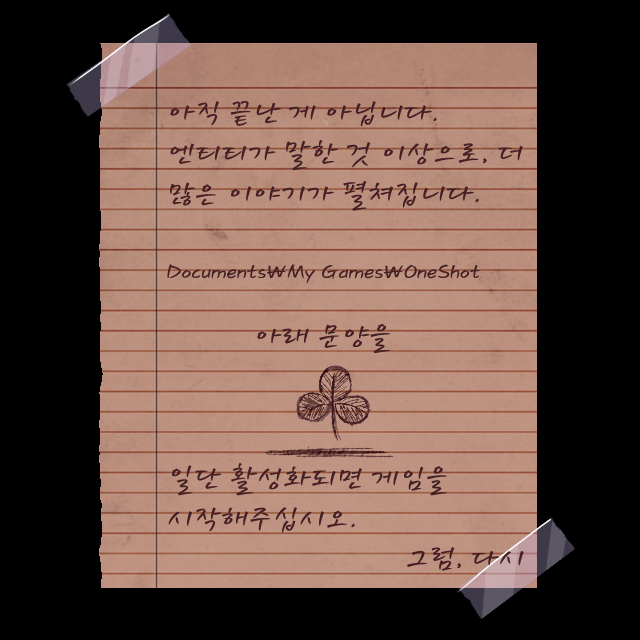 아직 끝난 게 아닙니다.
엔티티가 말한 것 이상으로, 더
많은 이야기가 펼쳐집니다.
Documents₩My Games₩OneShot
아래 문양을
일단 활성화되면 게임을
시작해주십시오.
그럼, 다시